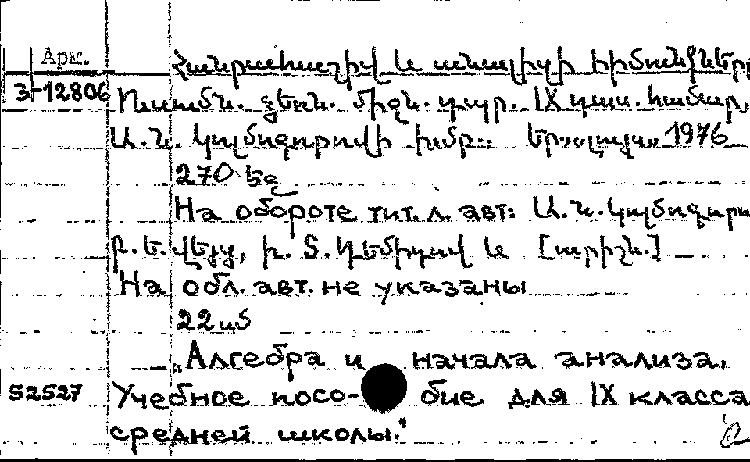 Арм.
Հանրահաշիվ և անալիզի հիմունքները
3-12806 Ուսումն. ձեռն. միջն. դպր. IX դաս. համար,
Ա.Ն. Կոլմոգորովի խմբ.: Եր., Լույս, 1976
270 էջ
На обороте тит. л. авт: Ա.Ն. Կոլմոգոր
Բ. Ե. Վեյց, Ի. Տ. Դեմիդով և [ուրիշն.]
На обл. авт. не указаны
22 սմ
„Алгебра и начала анализа.
52527 Учебное посо- бие для IX класса
средней школы."